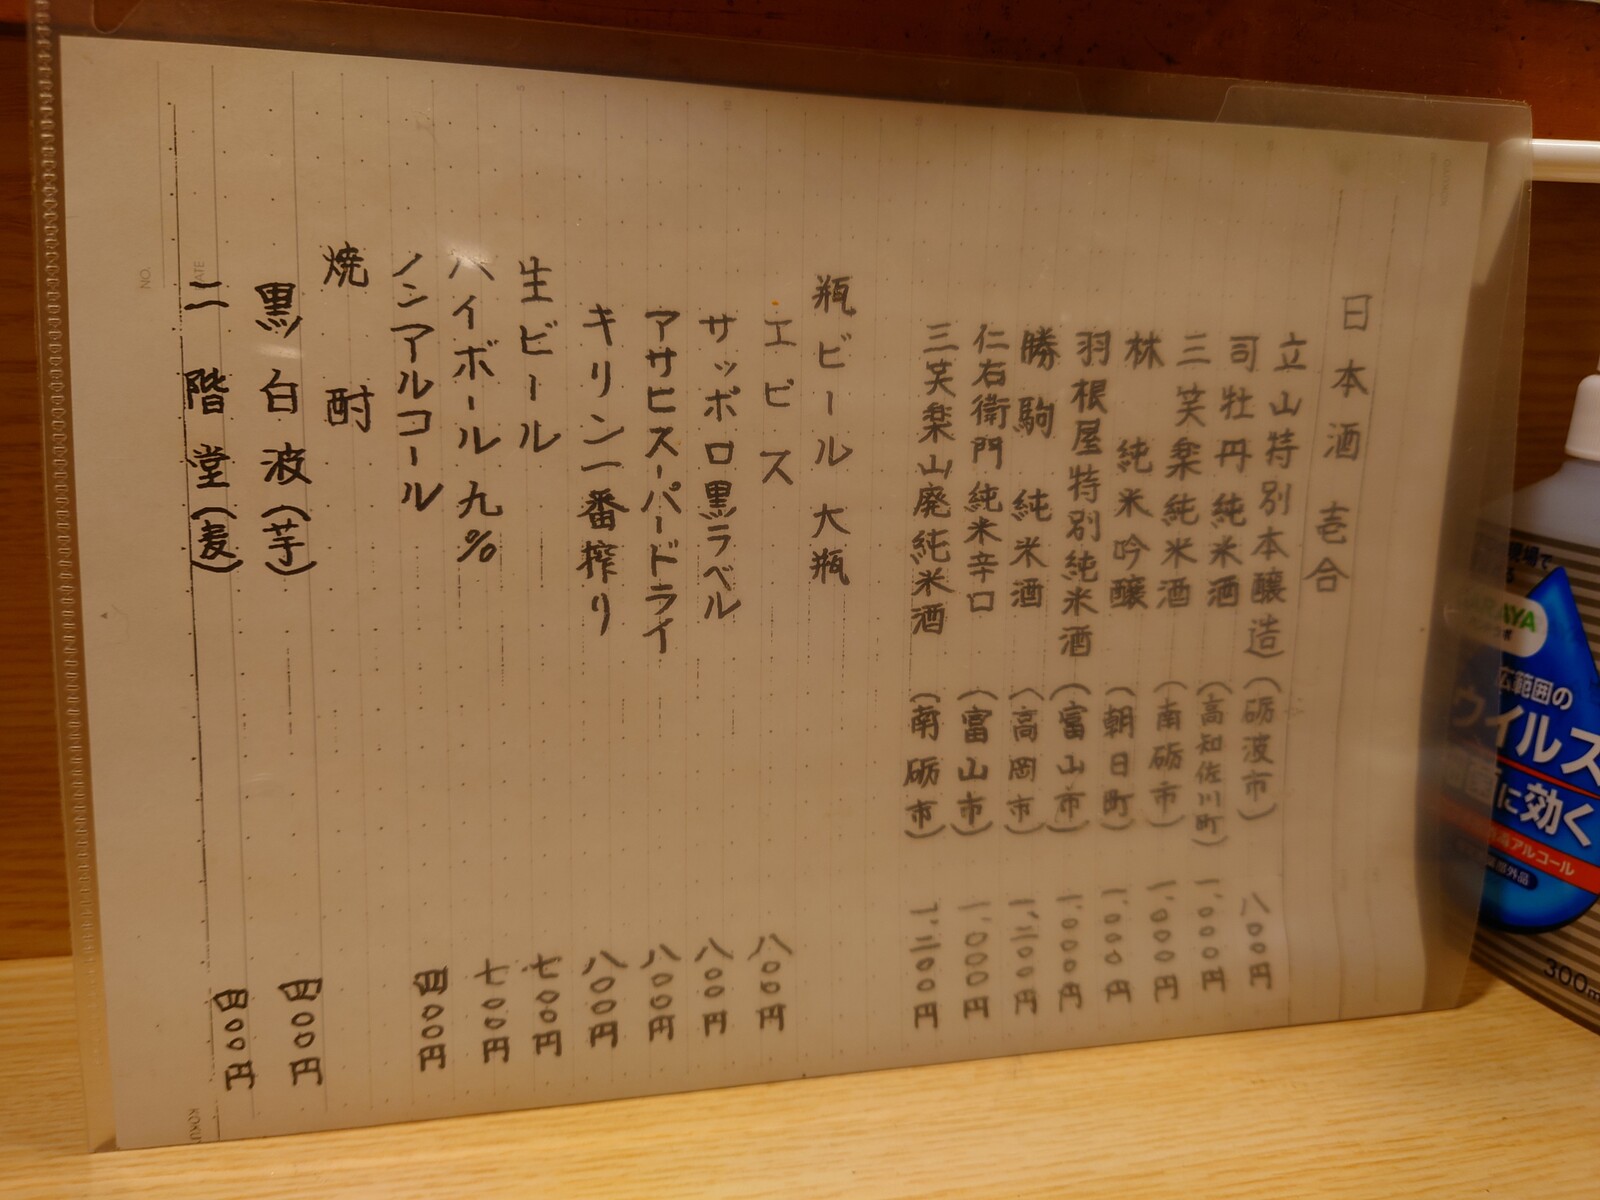 日本酒 壱合
立山特別本醸造(砺波市) 八〇〇円
司牡丹純米酒(高知佐川町) 一、〇〇〇円
三笑楽純米酒(南砺市) 一、〇〇〇円
林 純米吟醸(朝日町) 一、〇〇〇円
羽根屋特別純米酒(富山市) 一、〇〇〇円
勝駒 純米酒(高岡市) 一、三〇〇円
仁右衛門純米辛口(富山市) 一、〇〇〇円
三笑楽山廃純米酒(南砺市) 一、二〇〇円
瓶ビール大瓶
エビス 八〇〇円
サッポロ黒ラベル 八〇〇円
アサヒスーパードライ 八〇〇円
キリン一番搾り 八〇〇円
生ビール 七〇〇円
ハイボール九% 七〇〇円
ノンアルコール 四〇〇円
焼酎
黒白波(芋) 四〇〇円
二階堂(麦) 四〇〇円
NO.
DATE
広範囲の
ウイルス
に効く
アルコール
300m